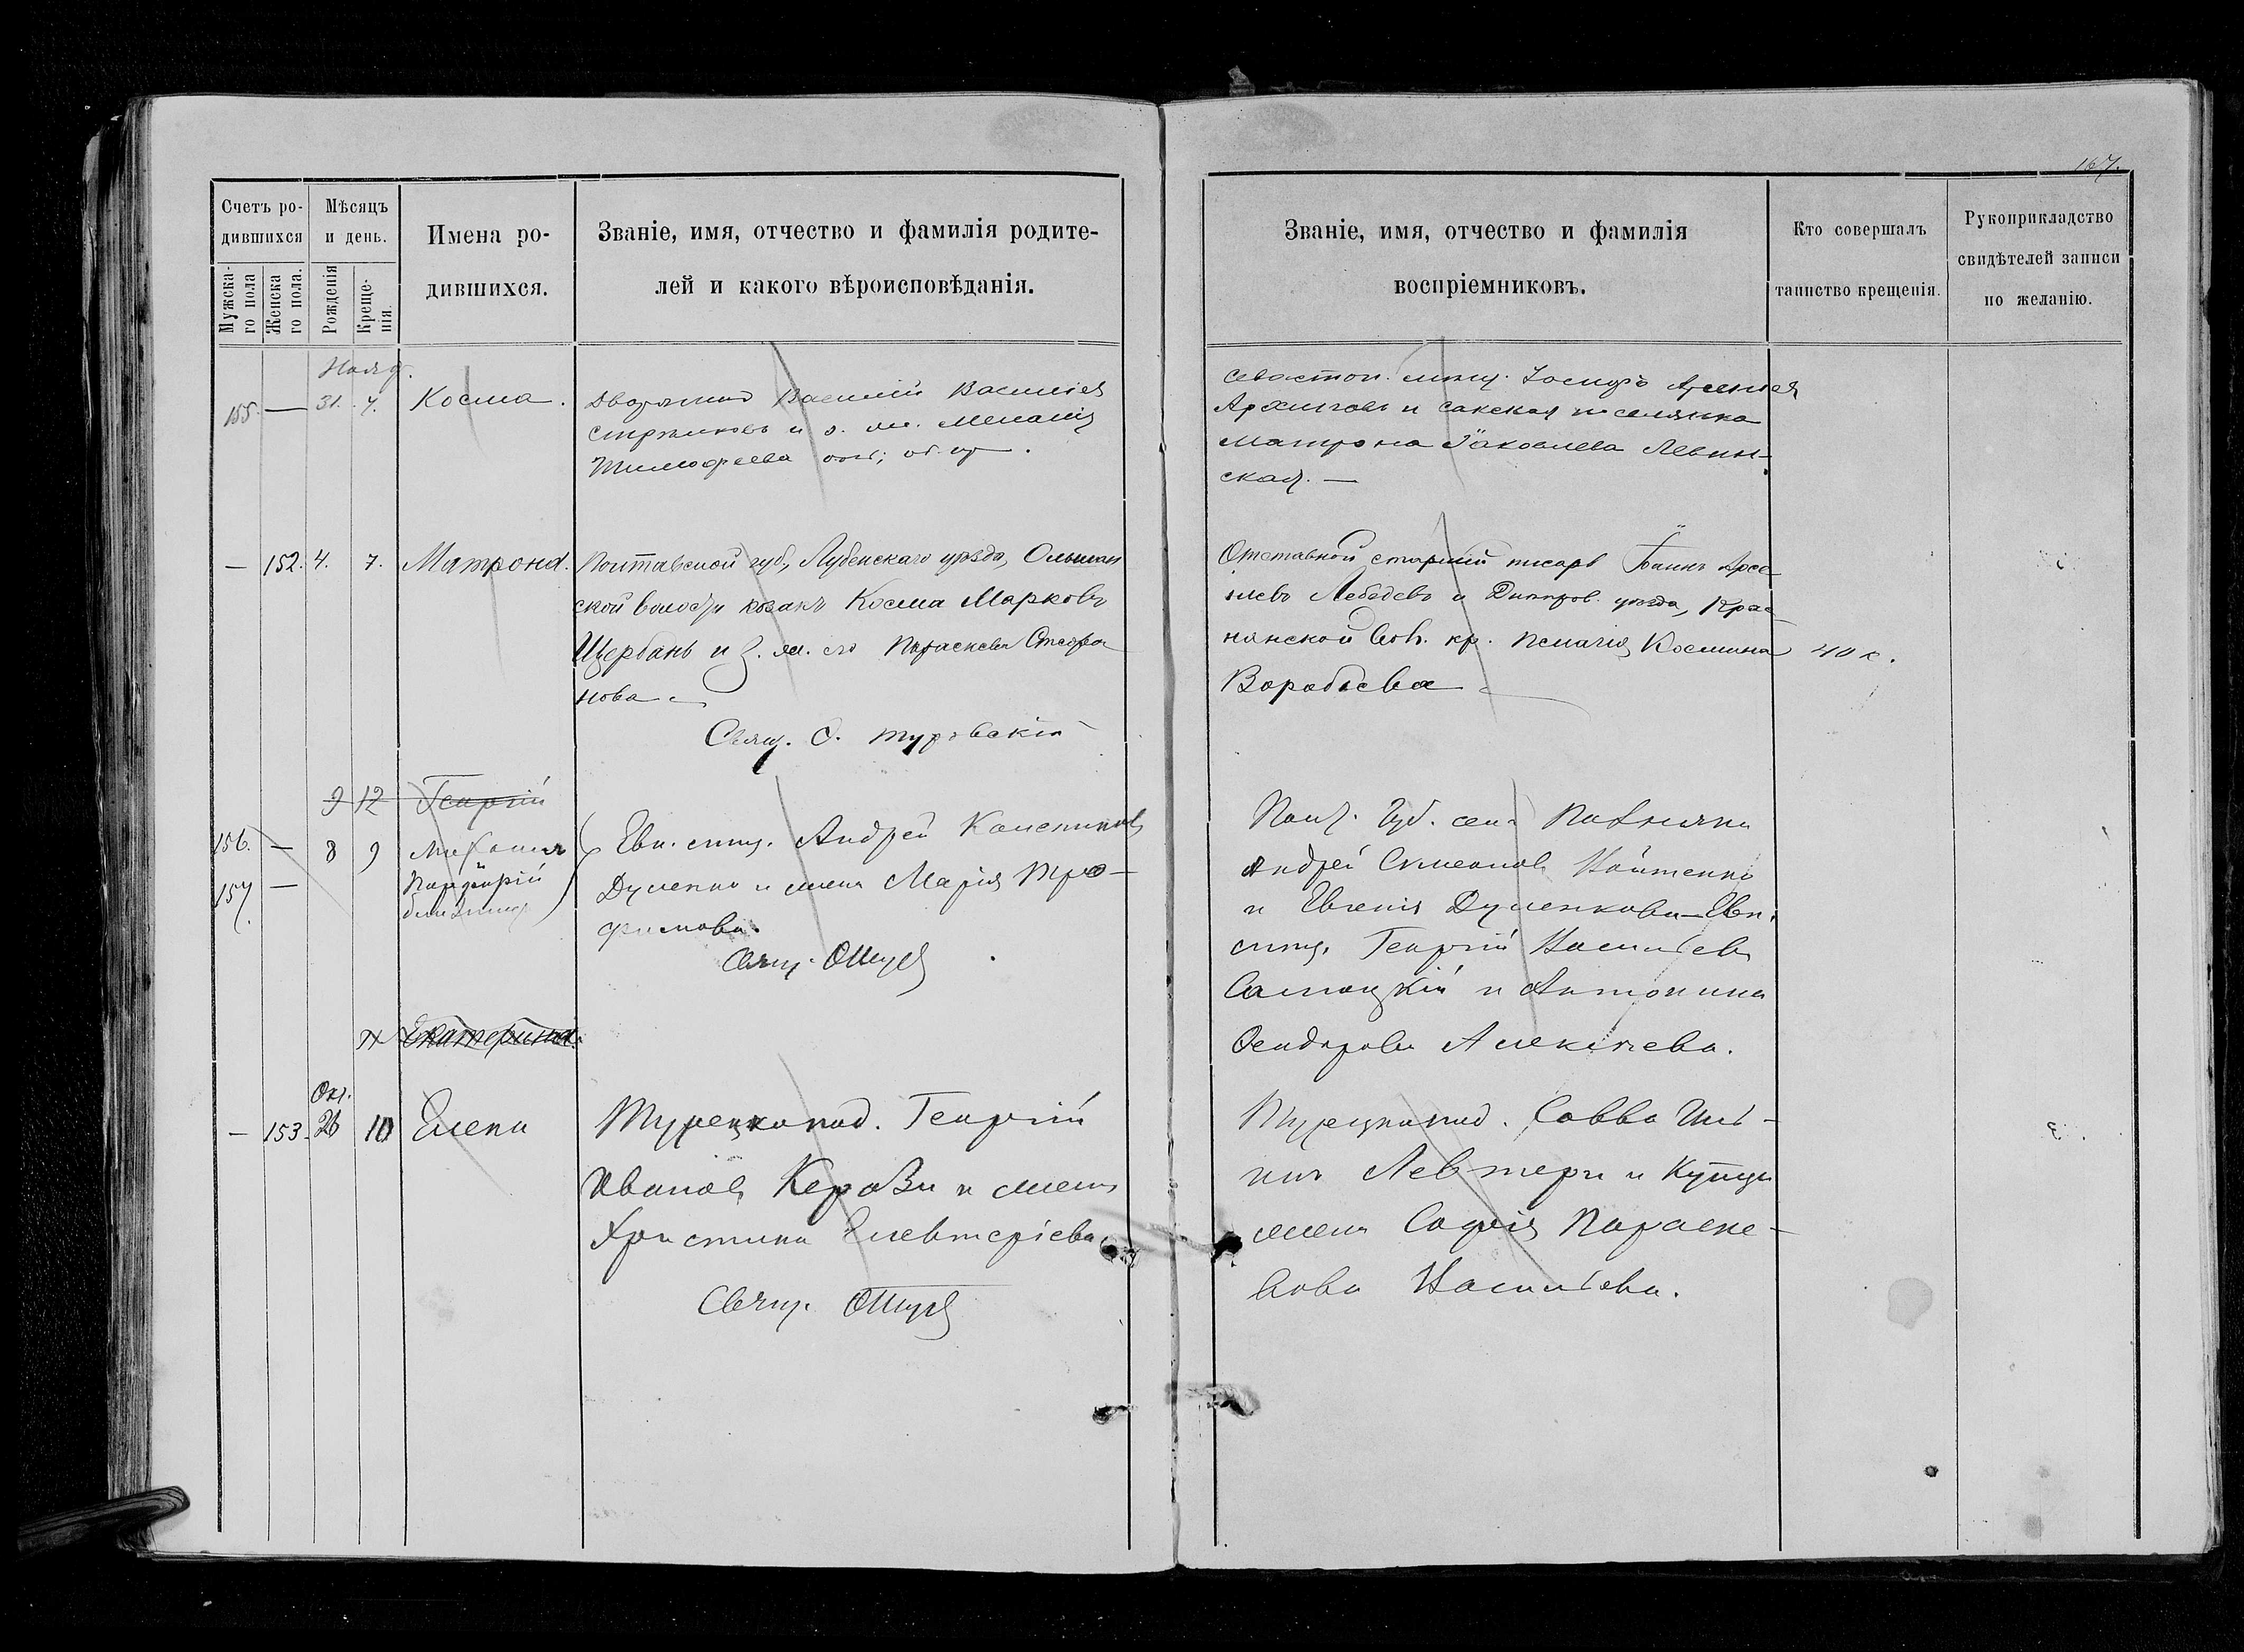 167.
Счетъ ро-
дившихся
Мужска-
го пола
Женска
го пола.
Мѣсяцъ
и день.
Рожденія
Креще-
нія.
Имена ро-
дившихся.
Званіе, имя, отчество и фамилія родите-
лей и какого вѣроисповѣданія.
Званіе, имя, отчество и фамилія
воспріемниковъ.
Кто совершалъ
таинство крещенія.
Рукоприкладство
свидѣтелей записи
по желанію.
Нояб.
155. — 31. 4. Косма.
Дворянинъ Василій Василіев
и з. ж. Меланія
Тимофеева
севастоп. мѣщ. Іосифъ
Архиповъ и сакская поселянка
Матрона Іаковлева Левин-
ская. —
— 152. 4. 7. Матрона.
Полтавской губ., Лубенскаго уѣзда, Ольшан
ской волости козакъ Косма Марковъ
Щербань и з. ж. его Параскева Стефа
нова
Свящ. С. Туровскій
Отставной старшій писарь Іоаннъ Арсе-
ніевъ Лебедевъ и Днѣпров. уѣзда, Крас
нянской вол. кр. Пелагія Космина
Воробьева
40 к.
9 12 Георгій
156. — 8 9 Михаилъ
157. —
близнецы
Евп. мѣщ. Андрей
Дуленко и жена Марія Тро-
фимова.
Свящ.
Полт. Губ.
Андрей Симеоновъ Нойтенко
и Евгенія Дуленкова — Евп.
мѣщ. Георгій Васильевъ
и Антонина
Феодорова Алексѣева.
Екатерина.
Окт.
— 153. 26 10 Елена
Турецкопод. Георгій
Ивановъ Керози и жена
Христина Елевтеріева
Свящ.
Турецкопод. Савва Иль-
инъ Левтери и Купца
жена Софія Параске-
вова Васильева.